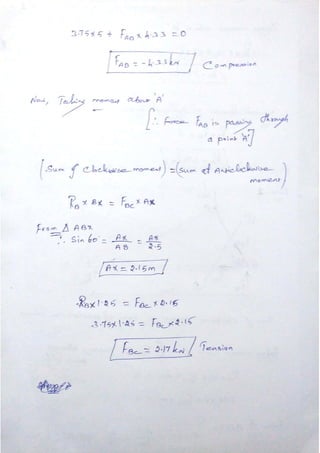 3.75×5 + FAB × 4.33 = 0
FAB = -4.33 kN Compression
Now, Taking moment about 'A'
[∵ Force FAB is passing through
a point 'A']
(Sum of clockwise moment) = (sum of Anticlockwise
moment)
RB × Bx = FBC × Ax
From Δ ABx
∴ Sin 60 = Ax / AB = Ax / 2.5
Ax = 2.15m
RB×1.25 = FBC × 2.15
3.75×1.25 = FBC × 2.15
FBC = 2.17 kN Tension